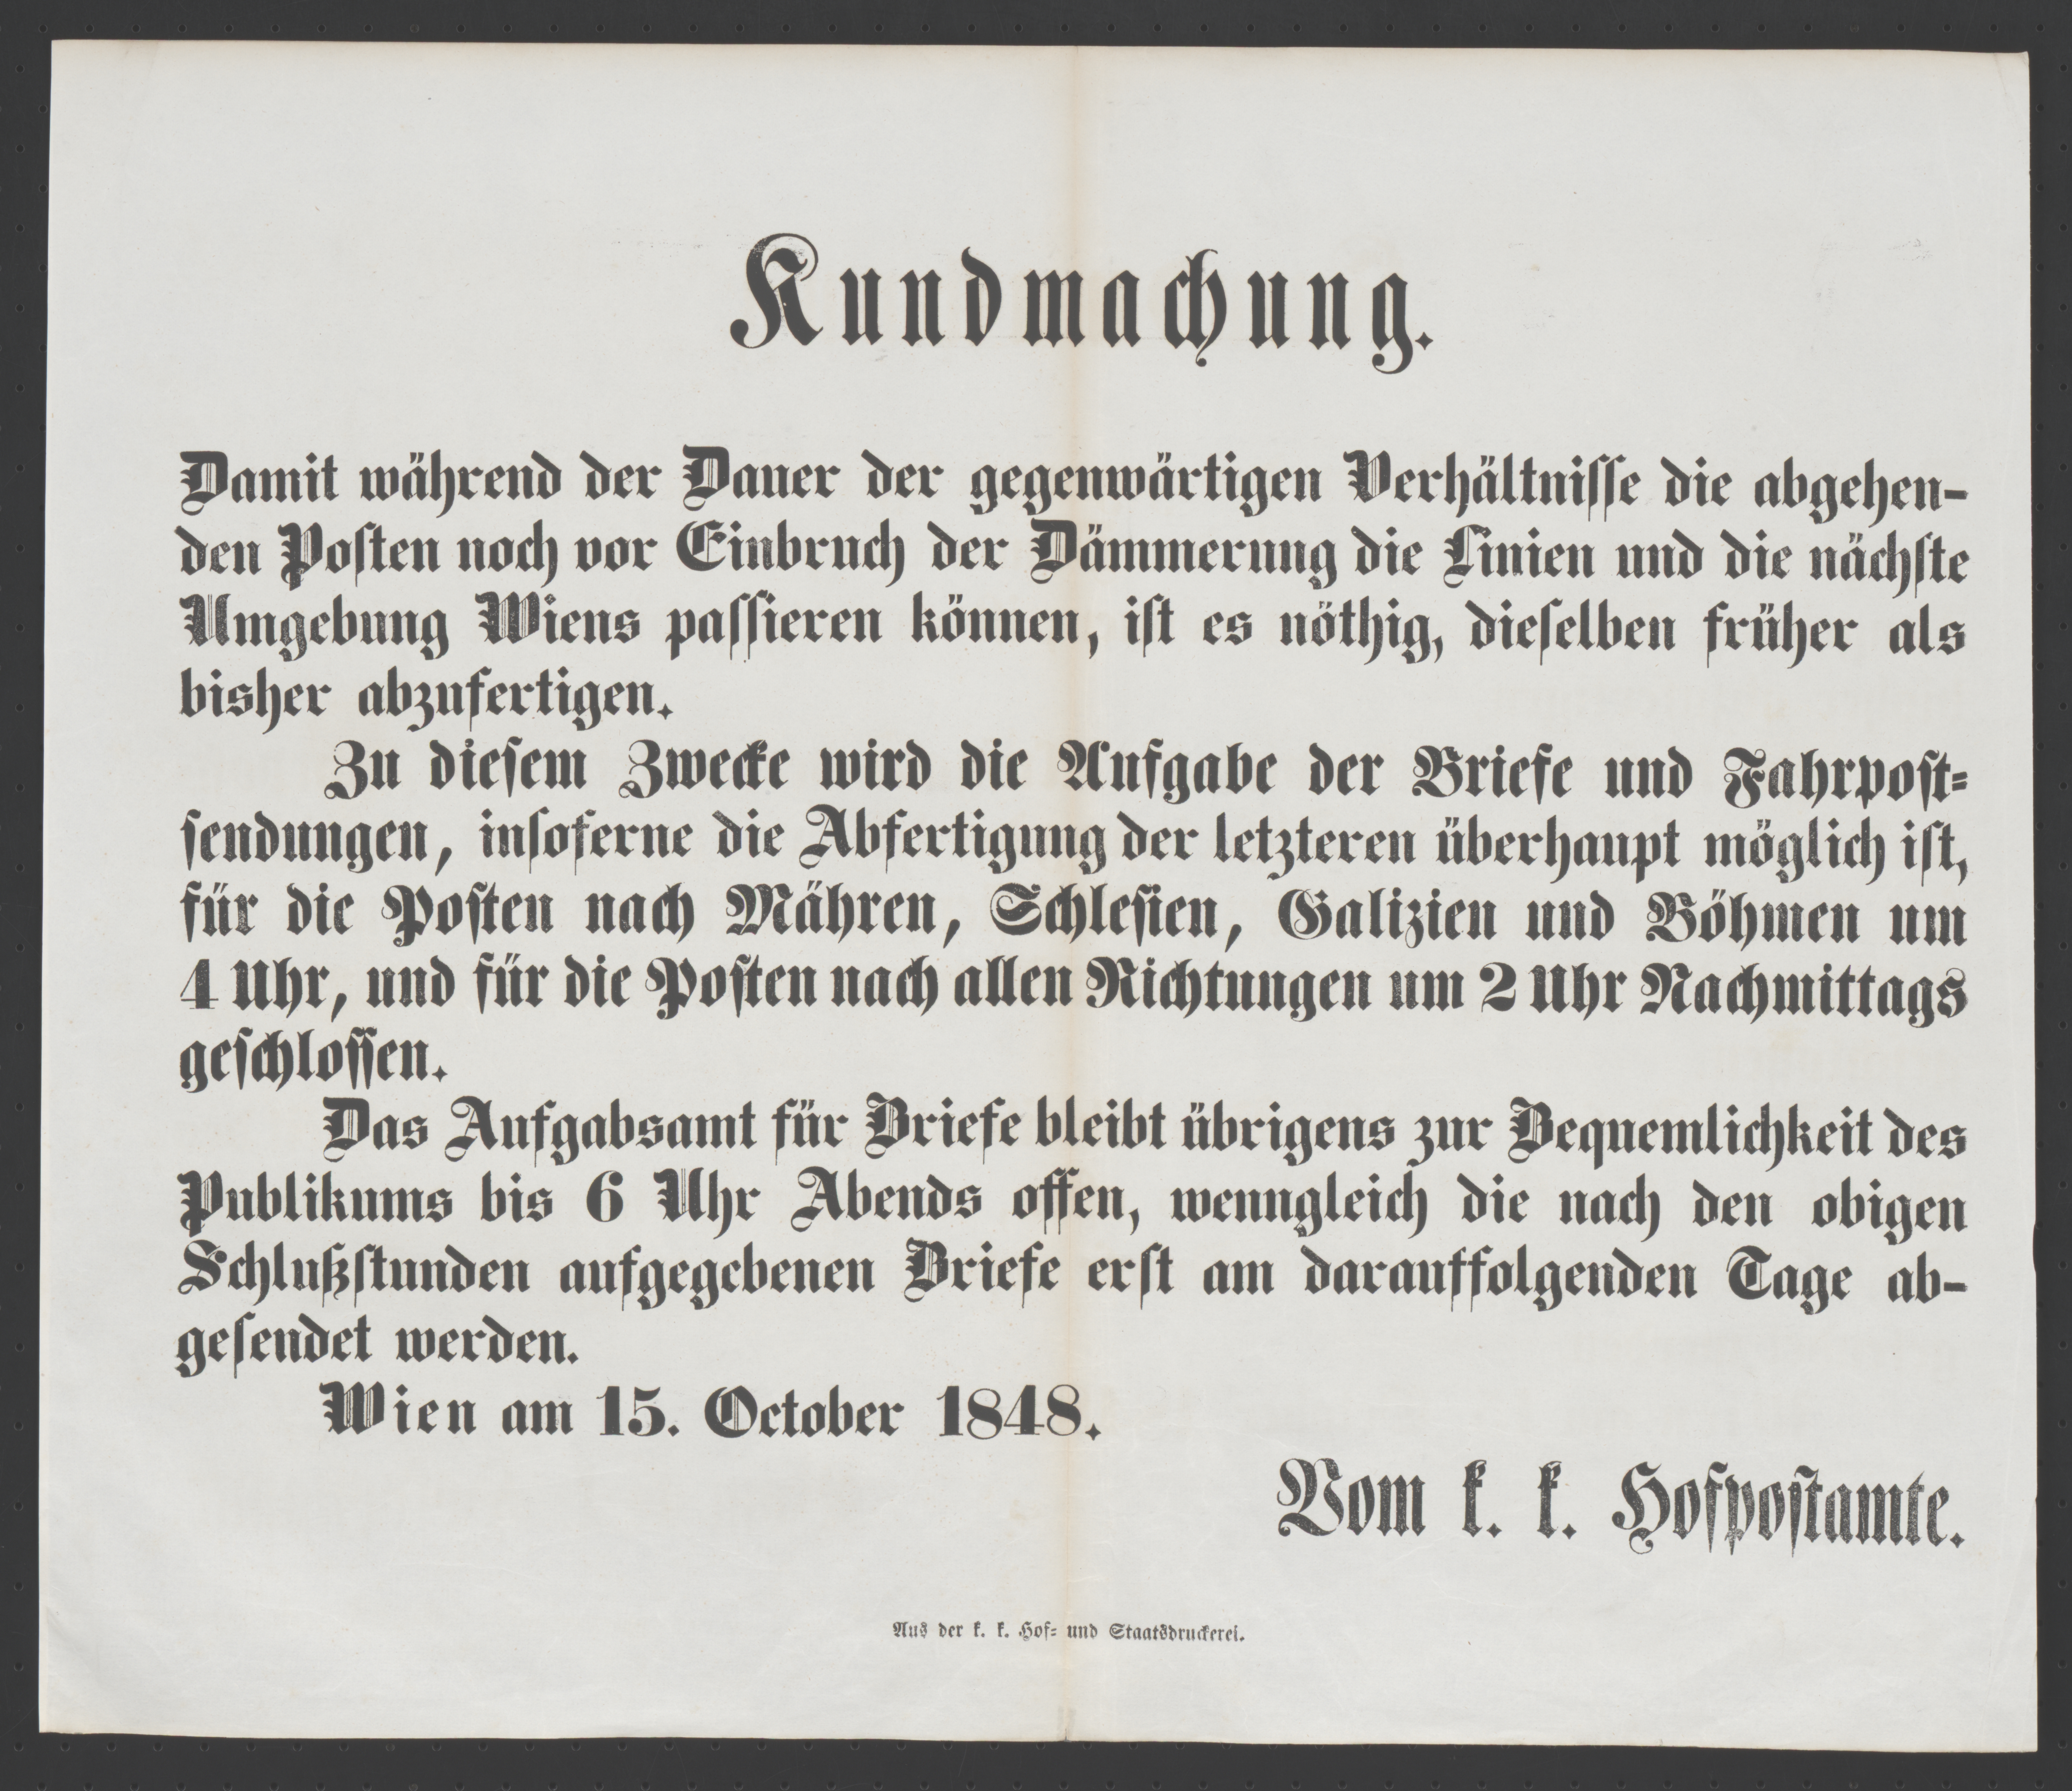 Kundmachung.
Damit während der Dauer der gegenwärtigen Verhältnisse die abgehen-
den Posten noch vor Einbruch der Dämmerung die Linien und die nächste
Umgebung Wiens passieren können, ist es nöthig, dieselben früher als
bisher abzufertigen.
Zu diesem Zwecke wird die Aufgabe der Briefe und Fahrpost-
sendungen, insoferne die Abfertigung der letzteren überhaupt möglich ist,
für die Posten nach Mähren, Schlesien, Galizien und Böhmen um
4 Uhr, und für die Posten nach allen Richtungen um 2 Uhr Nachmittags
geschlossen.
Das Aufgabsamt für Briefe bleibt übrigens zur Bequemlichkeit des
Publikums bis 6 Uhr Abends offen, wenngleich die nach den obigen
Schlußstunden aufgegebenen Briefe erst am darauffolgenden Tage ab-
gesendet werden.
Wien am 15. October 1848.
Vom k. k. Hofpostamte.
Aus der k. k. Hof- und Staatsdruckerei.